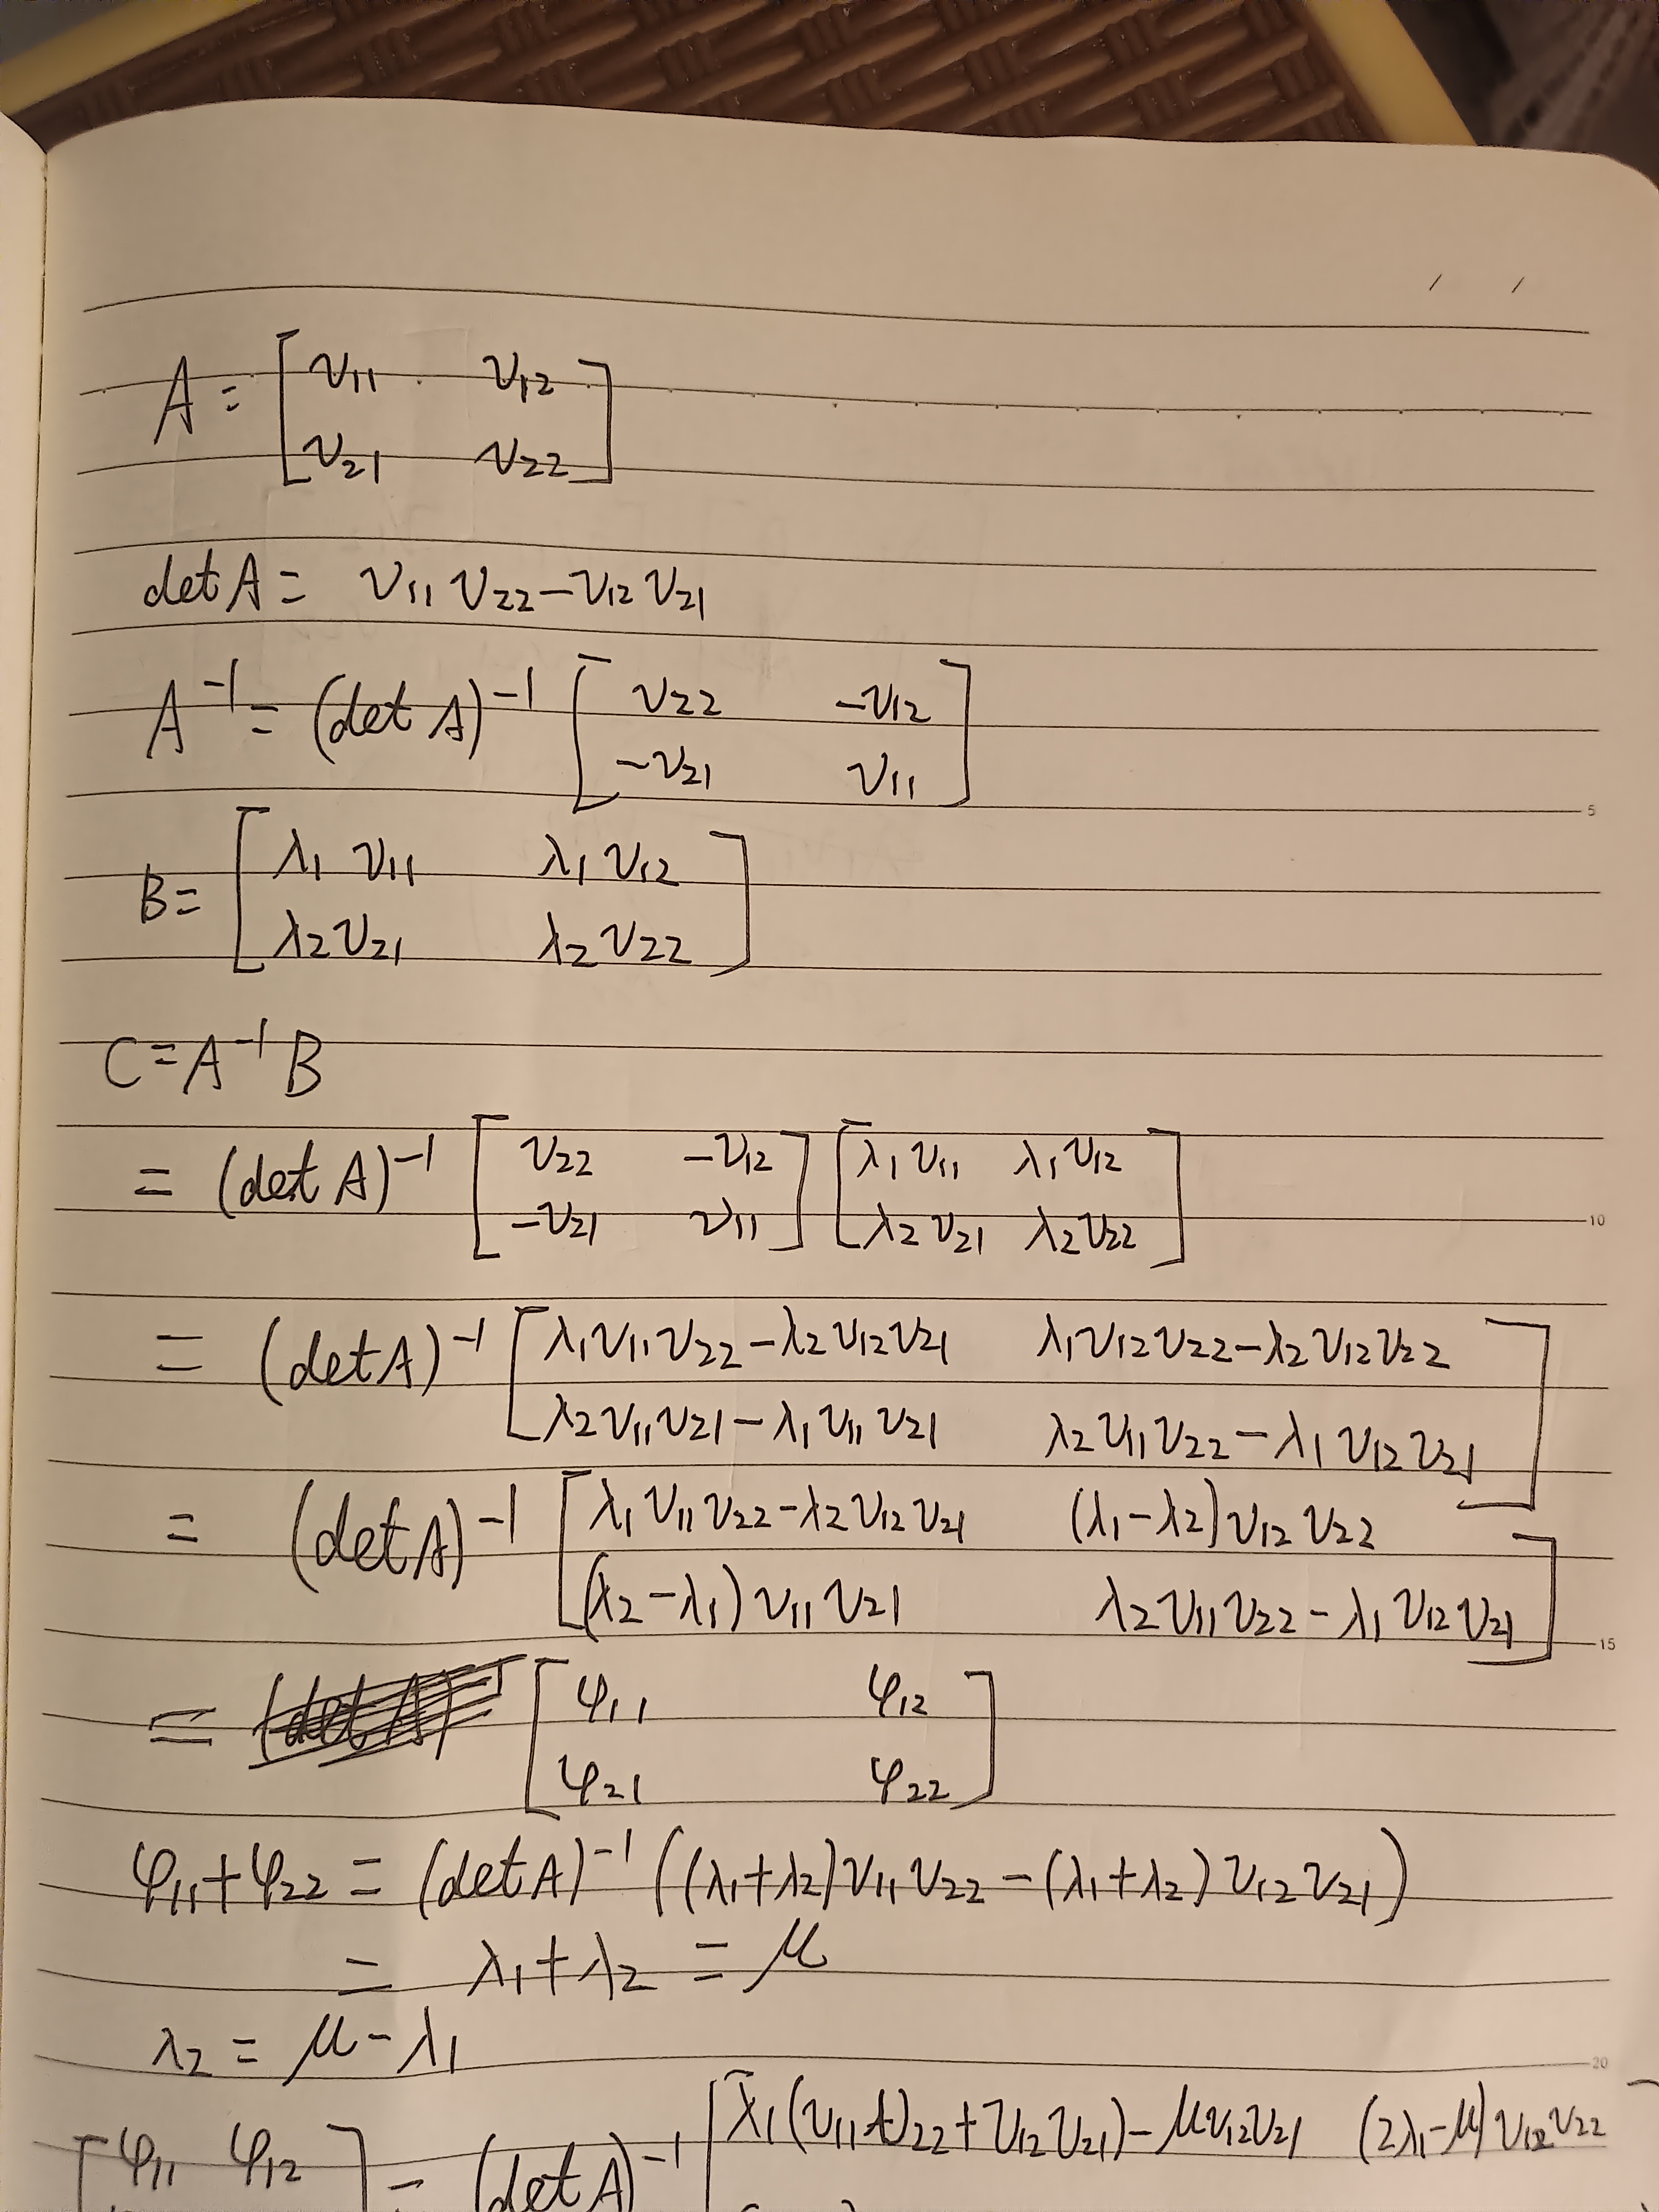 A = [ v₁₁ v₁₂
v₂₁ v₂₂ ]
det A = v₁₁ v₂₂ − v₁₂ v₂₁
A⁻¹ = (det A)⁻¹ [ v₂₂ −v₁₂
−v₂₁ v₁₁ ]
5
B = [ λ₁ v₁₁ λ₁ v₁₂
λ₂ v₂₁ λ₂ v₂₂ ]
C = A⁻¹ B
= (det A)⁻¹ [ v₂₂ −v₁₂ ] [ λ₁ v₁₁ λ₁ v₁₂
−v₂₁ v₁₁ ] [ λ₂ v₂₁ λ₂ v₂₂ ]
10
= (det A)⁻¹ [ λ₁ v₁₁ v₂₂ − λ₂ v₁₂ v₂₁ λ₁ v₁₂ v₂₂ − λ₂ v₁₂ v₂₂
λ₂ v₁₁ v₂₁ − λ₁ v₁₁ v₂₁ λ₂ v₁₁ v₂₂ − λ₁ v₁₂ v₂₁ ]
= (det A)⁻¹ [ λ₁ v₁₁ v₂₂ − λ₂ v₁₂ v₂₁ (λ₁ − λ₂) v₁₂ v₂₂
(λ₂ − λ₁) v₁₁ v₂₁ λ₂ v₁₁ v₂₂ − λ₁ v₁₂ v₂₁ ]
15
= [ φ₁₁ φ₁₂
φ₂₁ φ₂₂ ]
φ₁₁ + φ₂₂ = (det A)⁻¹ ((λ₁ + λ₂) v₁₁ v₂₂ − (λ₁ + λ₂) v₁₂ v₂₁)
= λ₁ + λ₂ = μ
λ₂ = μ − λ₁
20
[ φ₁₁ φ₁₂ ] = (det A)⁻¹ [ λ₁ (v₁₁ v₂₂ + v₁₂ v₂₁) − μ v₁₂ v₂₁ (2λ₁ − μ) v₁₂ v₂₂